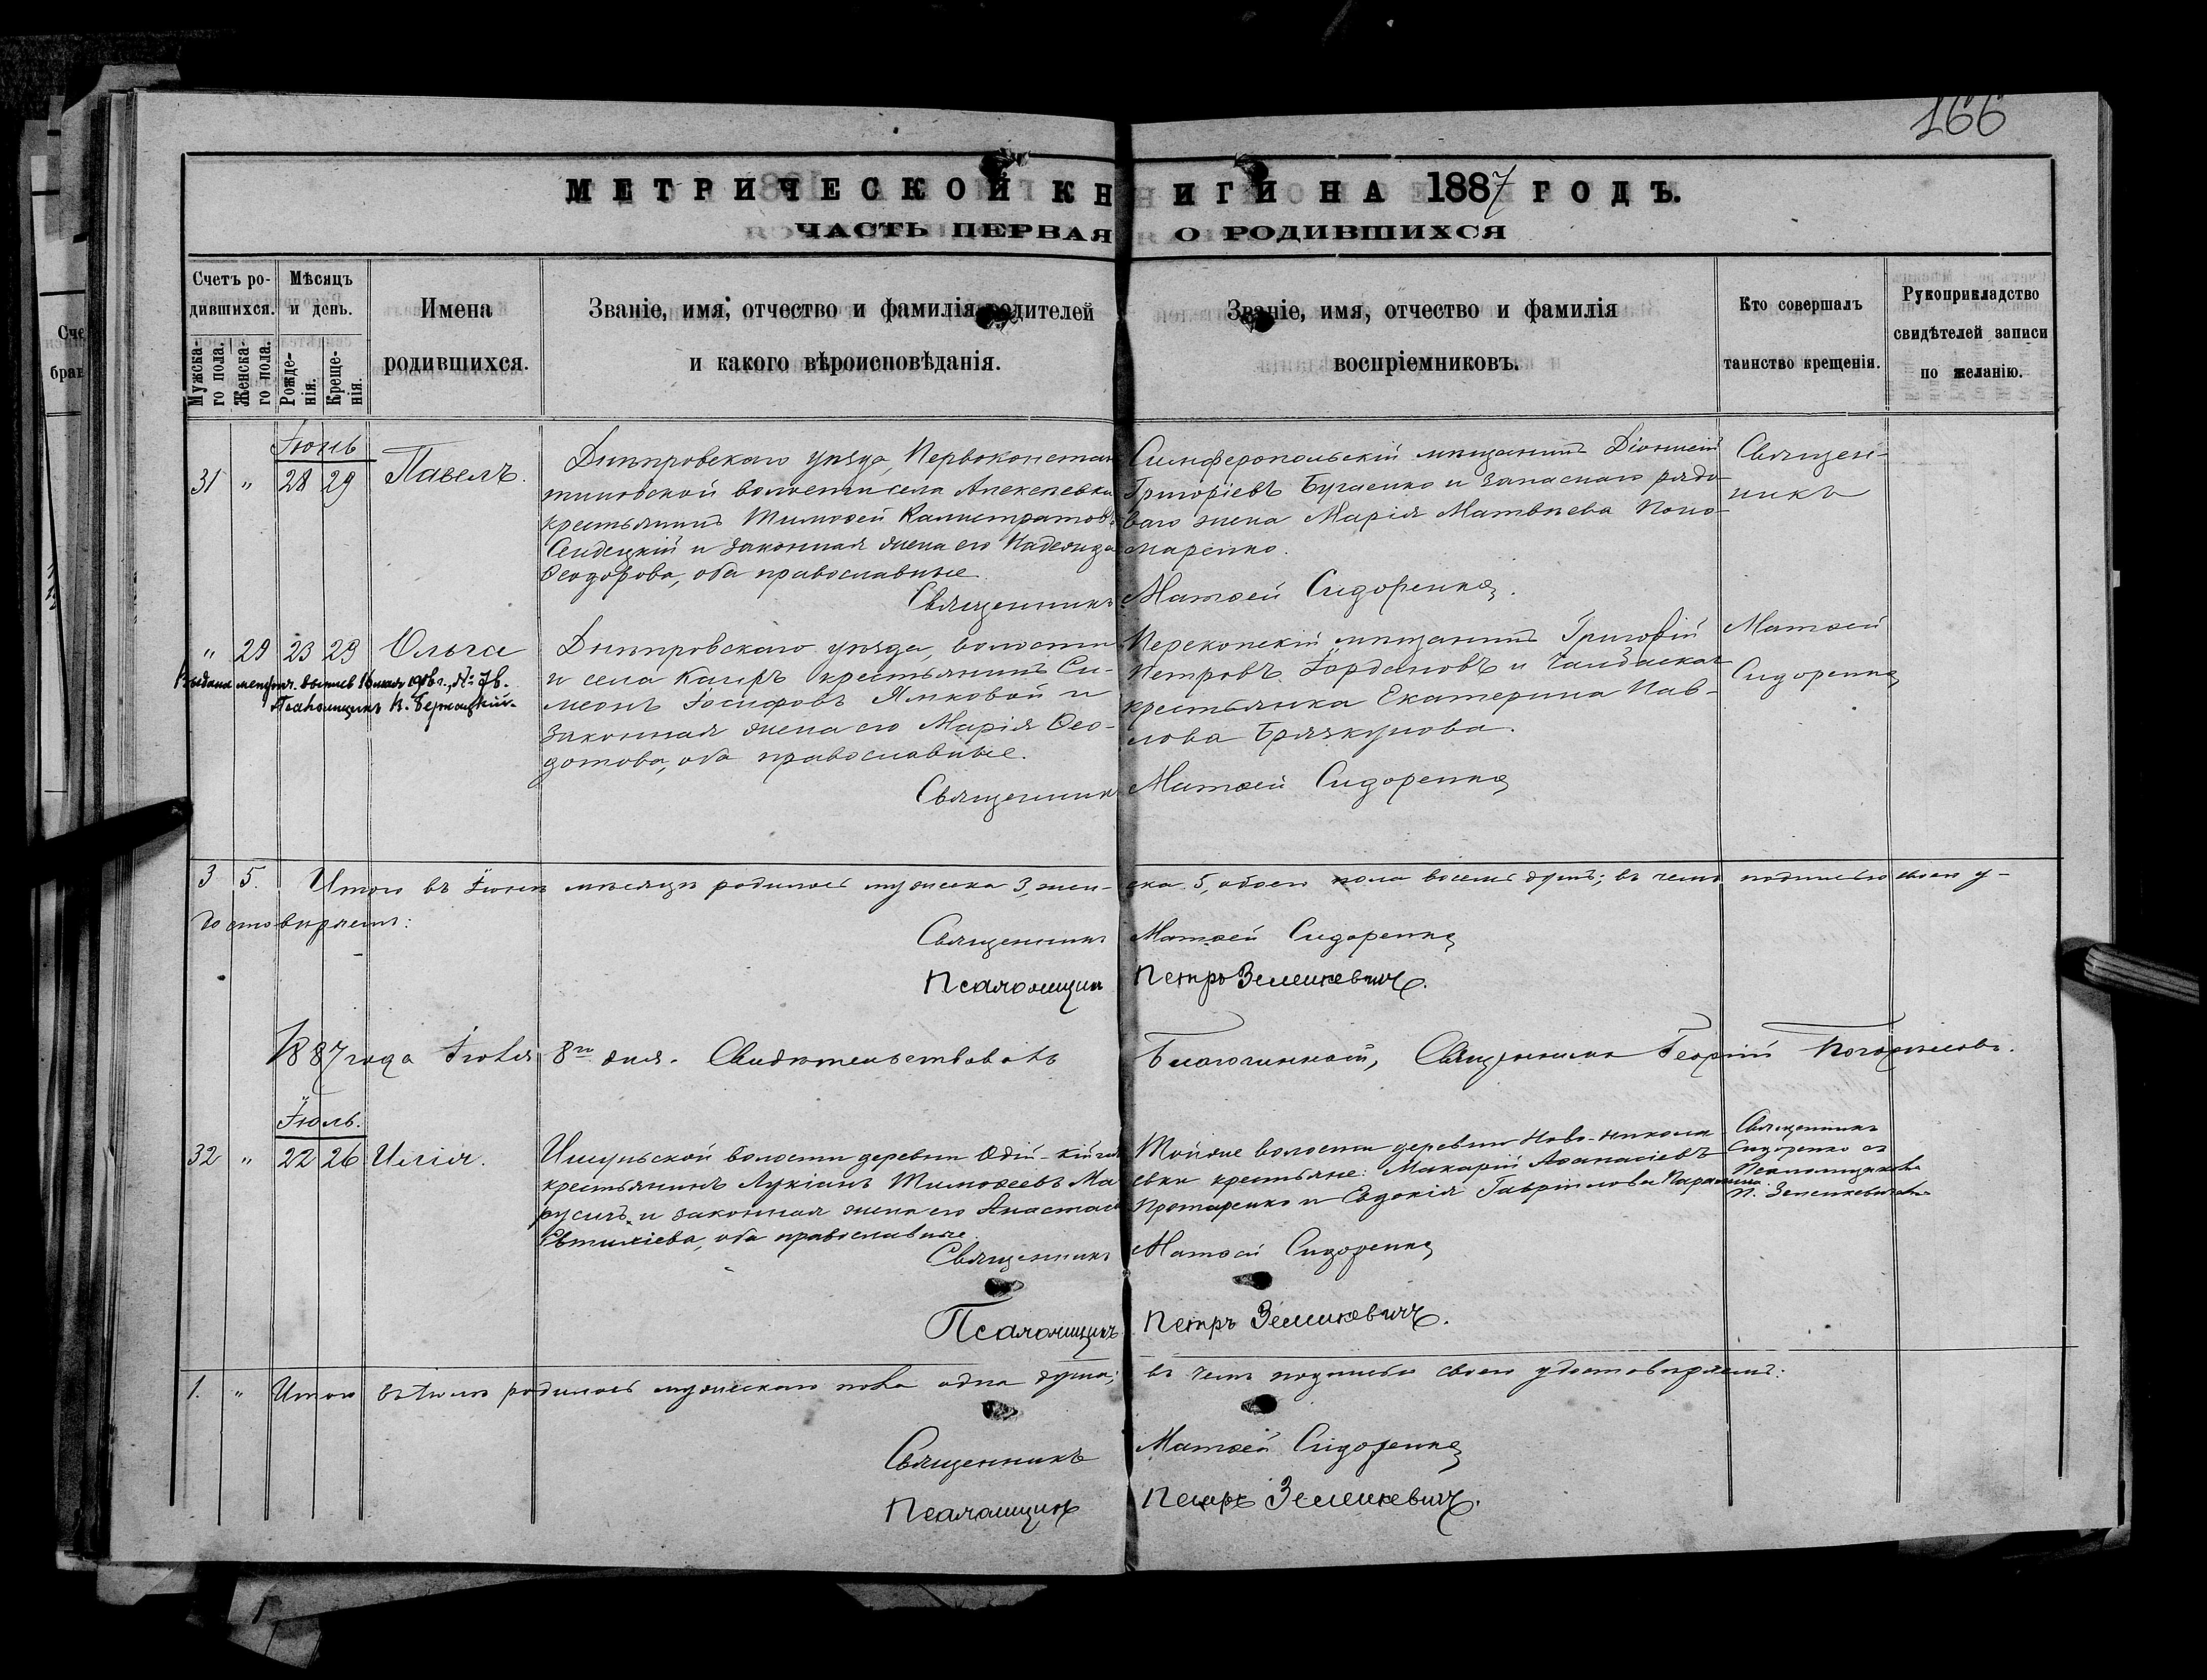 166
МЕТРИЧЕСКОЙ КНИГИ НА 1887 ГОДЪ.
ЧАСТЬ ПЕРВАЯ О РОДИВШИХСЯ
Счетъ родившихся.
Мужскаго пола.
Женскаго пола.
Мѣсяцъ и день.
Рожденія.
Крещенія.
Имена родившихся.
Званіе, имя, отчество и фамилія родителей
и какого вѣроисповѣданія.
Званіе, имя, отчество и фамилія
воспріемниковъ.
Кто совершалъ
таинство крещенія.
Рукоприкладство
свидѣтелей записи
по желанію.
Іюнь
31 " 28 29 Павелъ.
Днѣпровскаго уѣзда, Первоконстан
тиновской волости села Алексѣевки
крестьянинъ Тимоѳей Калистратовъ
и законная жена его Надежда
Ѳеодорова, оба православные.
Симферопольскій мѣщанинъ Діонисій
Григоріевъ и запаснаго рядо-
ваго жена Марія Матвѣева Поно-
маренко.
Священ-
никъ
Священникъ Матѳей Сидоренко.
" 29 23 29 Ольга
Днѣпровскаго уѣзда, волости
и села Каиръ крестьянинъ Си-
меонъ Іосифовъ Ямковой и
законная жена его Марія Ѳео-
дотова, оба православные.
Перекопскій мѣщанинъ Григорій
Петровъ Іордановъ и
крестьянка Екатерина Пав-
лова
Матѳей
Сидоренко
Выдана метрич. выпись 16 мая
Псаломщикъ
Священникъ Матѳей Сидоренко
3 5. Итого въ Іюнѣ мѣсяцѣ родилось мужеска 3, жен- ска 5, обоего пола восемь душъ; въ чемъ подписью своею у-
достовѣряемъ:
Священникъ Матѳей Сидоренко
Псаломщикъ Петръ Зеленкевичъ.
1887 года Іюля 8го дня. Свидѣтельствовалъ Благочинный, Священникъ Георгій
Іюль.
32 " 22 26 Илія.
Ишуньской волости деревни
крестьянинъ Лукіанъ Тимоѳеевъ Ма
русичъ и законная жена его Анастасія
Евтихіева, оба православные.
Тойже волости деревни Ново-Никола
евки крестьяне: Макарій Аѳанасіевъ
и Евдокія Гавріилова
Священникъ
Сидоренко съ
Псаломщикомъ
П. Зеленкевичемъ
Священникъ Матѳей Сидоренко
Псаломщикъ Петръ Зеленкевичъ.
1. " Итого въ Іюлѣ родилось мужескаго пола одна душа; въ чемъ подписью своею удостовѣряемъ:
Священникъ Матѳей Сидоренко
Псаломщикъ Петръ Зеленкевичъ.